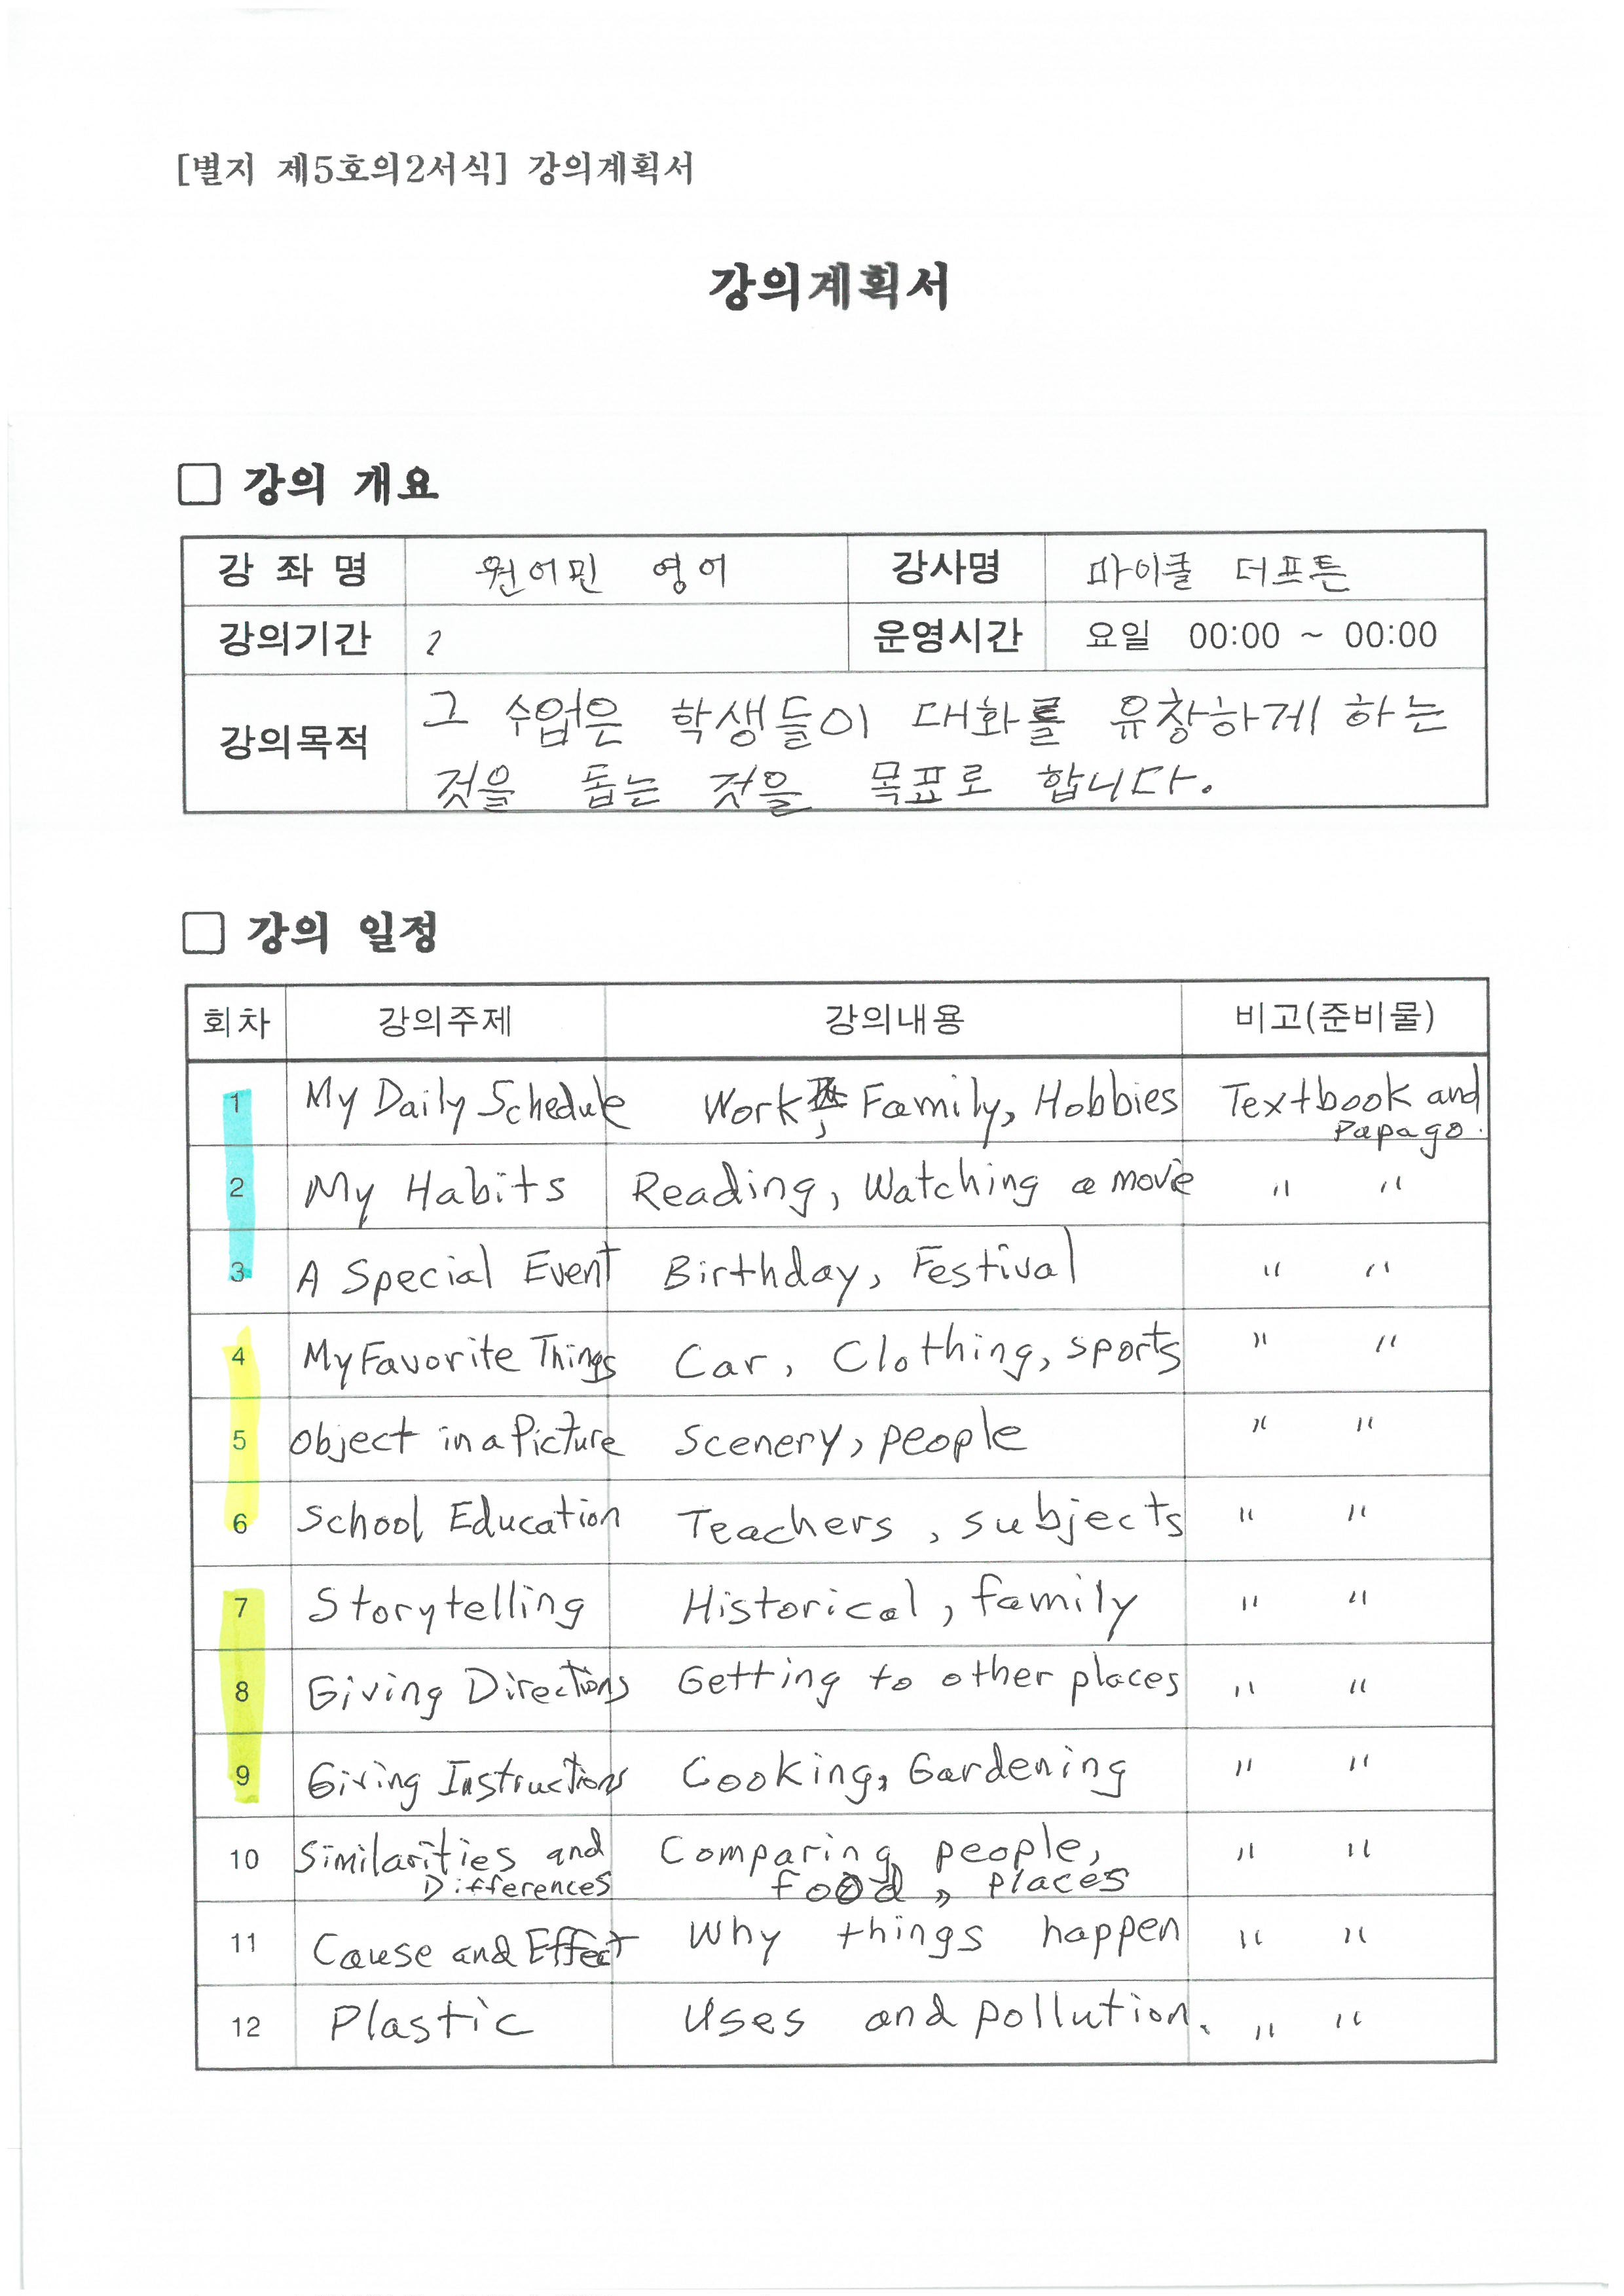 [별지 제5호의2서식] 강의계획서
강의계획서
□ 강의 개요
강 좌 명 원어민 영어 강사명 마이클 더프튼
강의기간 2 운영시간 요일 00:00 ~ 00:00
강의목적 그 수업은 학생들이 대화를 유창하게 하는
것을 돕는 것을 목표로 합니다.
□ 강의 일정
회차 강의주제 강의내용 비고(준비물)
1 My Daily Schedule Work, Family, Hobbies Textbook and
Papago.
2 My Habits Reading, Watching a movie " "
3 A Special Event Birthday, Festival " "
4 My Favorite Things Car, Clothing, sports " "
5 Object in a Picture Scenery, people " "
6 School Education Teachers, subjects " "
7 Storytelling Historical, family " "
8 Giving Directions Getting to other places " "
9 Giving Instructions Cooking, Gardening " "
10 Similarities and Comparing people, " "
Differences food, places
11 Cause and Effect Why things happen " "
12 Plastic Uses and pollution. " "